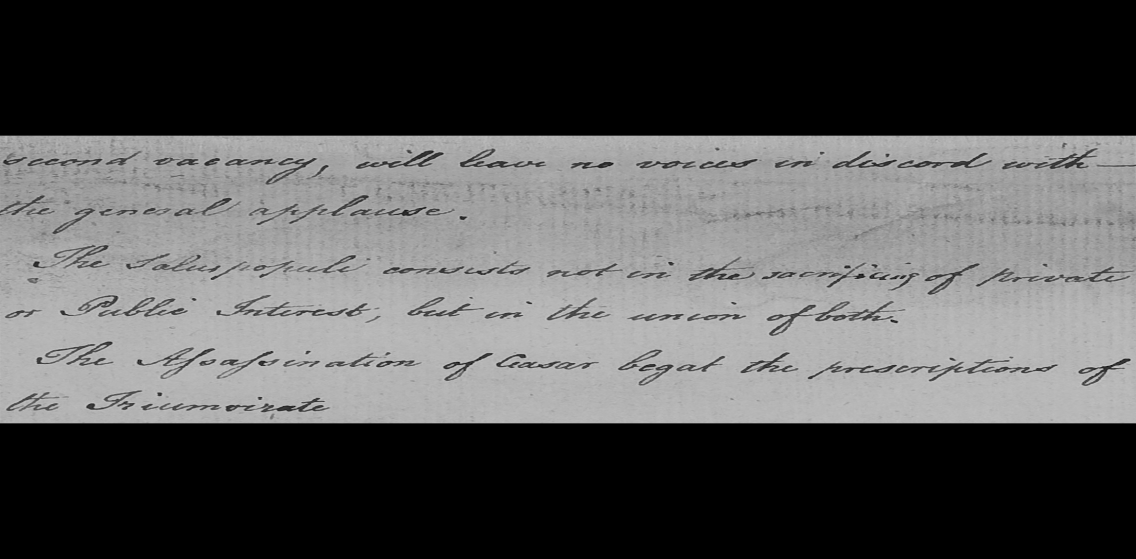 second vacancy, will leave no voices in discord with
the general applause.
The Salus populi consists not in the sacrificing of private
or Public Interest, but in the union of both.
The Assassination of Ceasar begat the prescriptions of
the Triumvirate